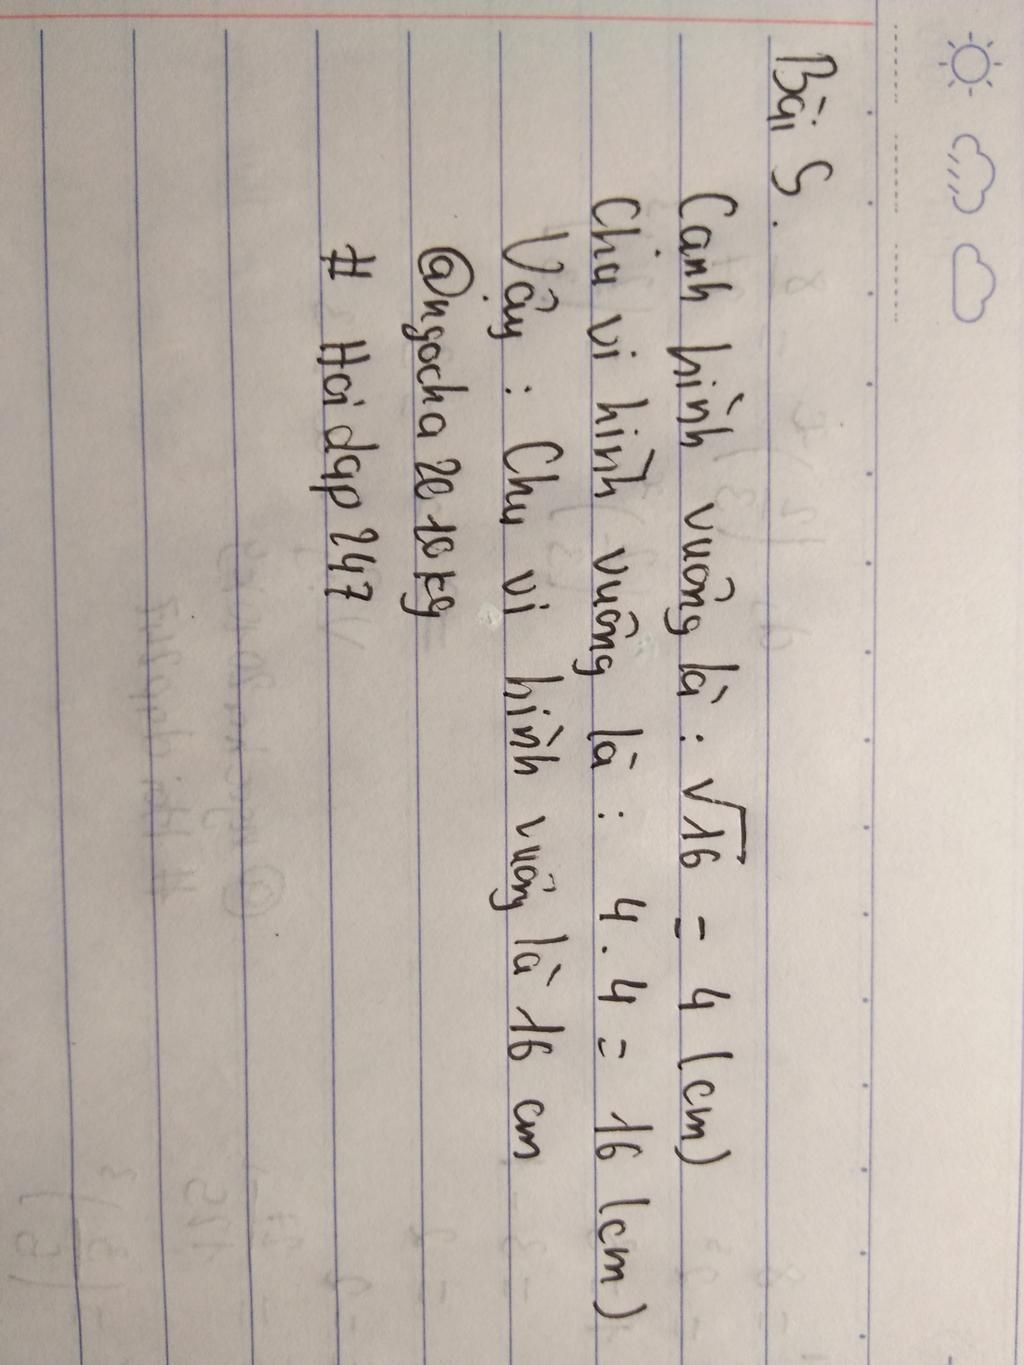 Bài 5.
Cạnh hình vuông là : √16 = 4 (cm)
Chu vi hình vuông là : 4 . 4 = 16 (cm)
Vậy : Chu vi hình vuông là 16 cm
@ngocha2010kg
# Hoidap247